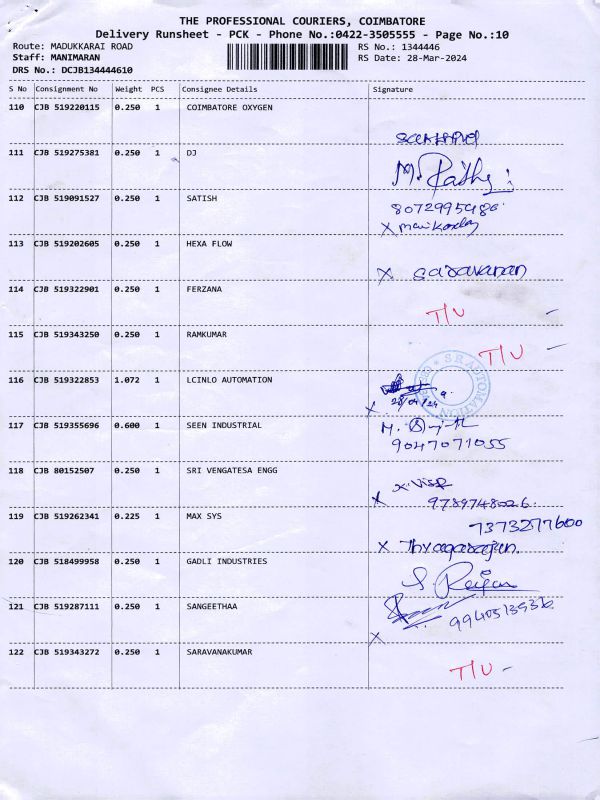 THE PROFESSIONAL COURIERS, COIMBATORE
Delivery Runsheet - PCK - Phone No.:0422-3505555 - Page No.:10
Route: MADUKKARAI ROAD RS No.: 1344446
Staff: MANIMARAN RS Date: 28-Mar-2024
DRS No.: DCJB134444610
S No Consignment No Weight PCS Consignee Details Signature
110 CJB 519220115 0.250 1 COIMBATORE OXYGEN
111 CJB 519275381 0.250 1 DJ
112 CJB 519091527 0.250 1 SATISH
x manikandan
113 CJB 519202605 0.250 1 HEXA FLOW
x saravanan
114 CJB 519322901 0.250 1 FERZANA
T/U
115 CJB 519343250 0.250 1 RAMKUMAR
T/U
116 CJB 519322853 1.072 1 LCINLO AUTOMATION
S R AUTOMATION
x
117 CJB 519355696 0.600 1 SEEN INDUSTRIAL
9047071055
118 CJB 80152507 0.250 1 SRI VENGATESA ENGG
x 9789748026
119 CJB 519262341 0.225 1 MAX SYS
7373277600
x Thyagarajan
120 CJB 518499958 0.250 1 GADLI INDUSTRIES
121 CJB 519287111 0.250 1 SANGEETHAA
x
122 CJB 519343272 0.250 1 SARAVANAKUMAR
T/U